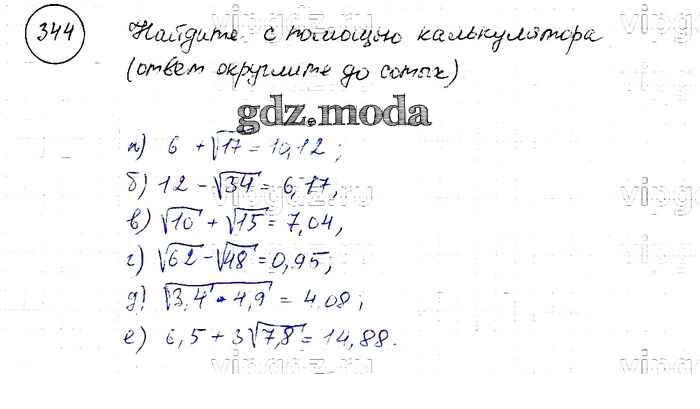 344 Найдите с помощью калькулятора
(ответ округлите до сотых)
gdz.moda
а) 6 + √17 = 10,12;
б) 12 - √34 = 6,17,
в) √10 + √15 = 7,04,
г) √62 - √48 = 0,95;
д) √3,4 · 4,9 = 4,08;
е) 6,5 + 3√7,8 = 14,88.
vipgdz.ru